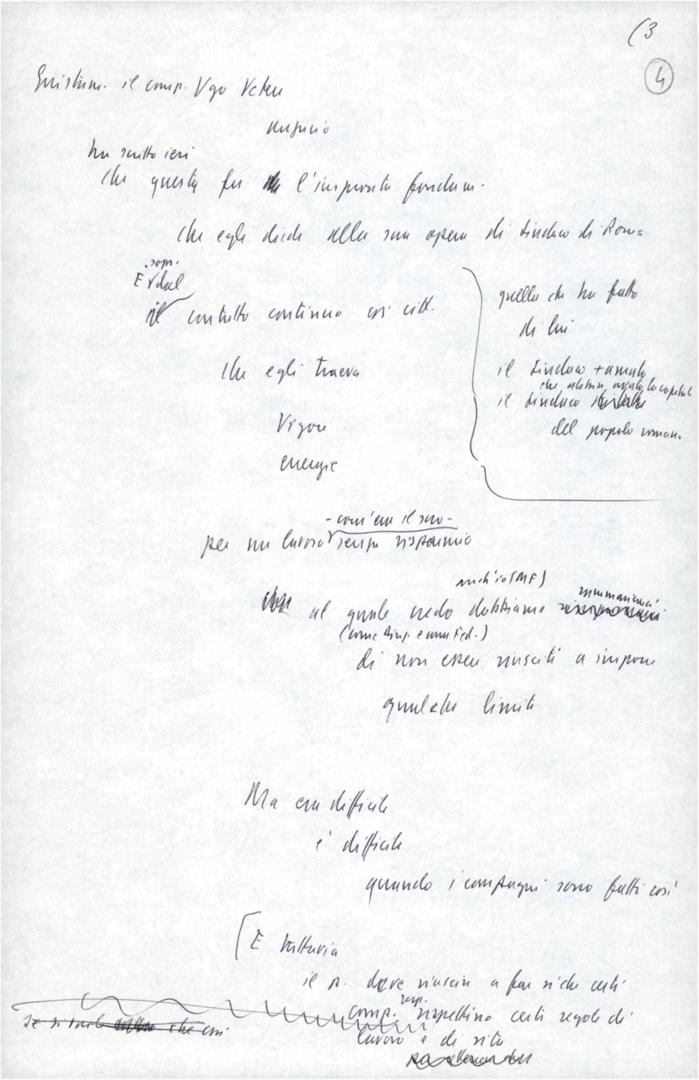 (3
4
Giustam. il comp. Ugo Vetere
ha scritto ieri
che questa fu l'impronta fondam.
che egli diede alla sua opera di Sindaco di Roma
E
il contatto continuo coi citt.
che egli traeva
Vigore
energie
quello che ha fatto
di lui
il Sindaco + amato
il Sindaco
del popolo romano
- com'era il suo -
per un lavoro senza risparmio
anch'io (MF)
al quale credo dobbiamo rammaricarci
(come Dir. e come Fed.)
di non essere riusciti a imporre
qualche limite
Ma era difficile
è difficile
quando i compagni sono fatti così
[E tuttavia
il p. deve riuscire a far sì che certi
comp. rispettino certe regole di
lavoro e di vita
che così